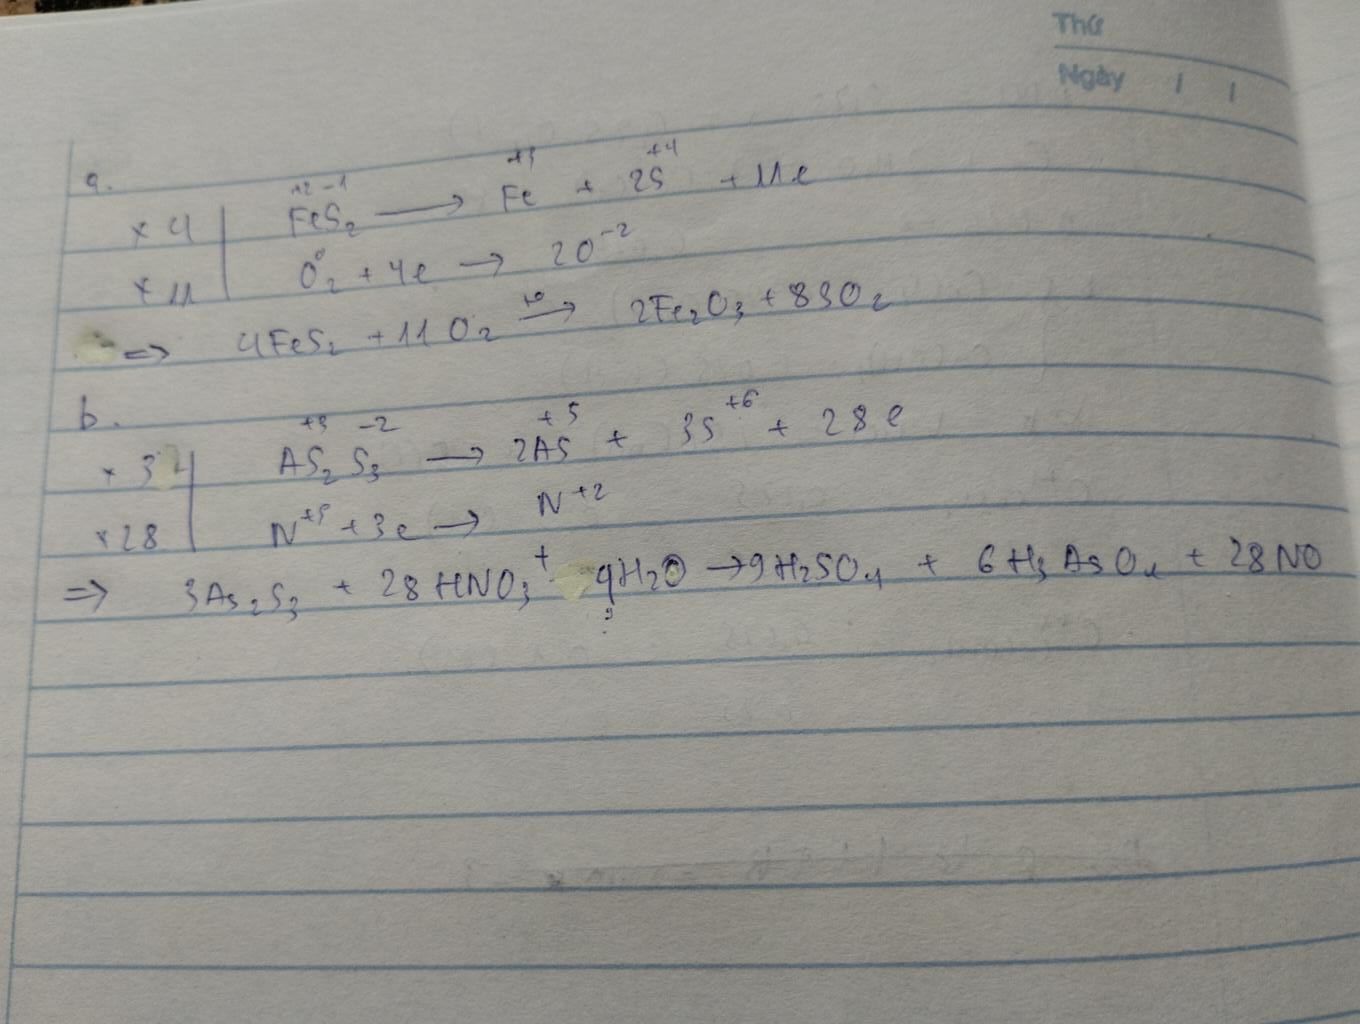 Thứ
Ngày / /
a.
+2 -1 +3 +4
x 4 | FeS₂ ⟶ Fe + 2S + 11e
x 11 | O⁰₂ + 4e → 2O⁻²
⇒ 4FeS₂ + 11O₂ →(t⁰) 2Fe₂O₃ + 8SO₂
b.
+3 -2 +5 +6
x 3 | AS₂S₃ ⟶ 2AS + 3S + 28e
x 28 | N⁺⁵ + 3e → N⁺²
⇒ 3As₂S₃ + 28HNO₃ + 4H₂O → 9H₂SO₄ + 6H₃AsO₄ + 28NO